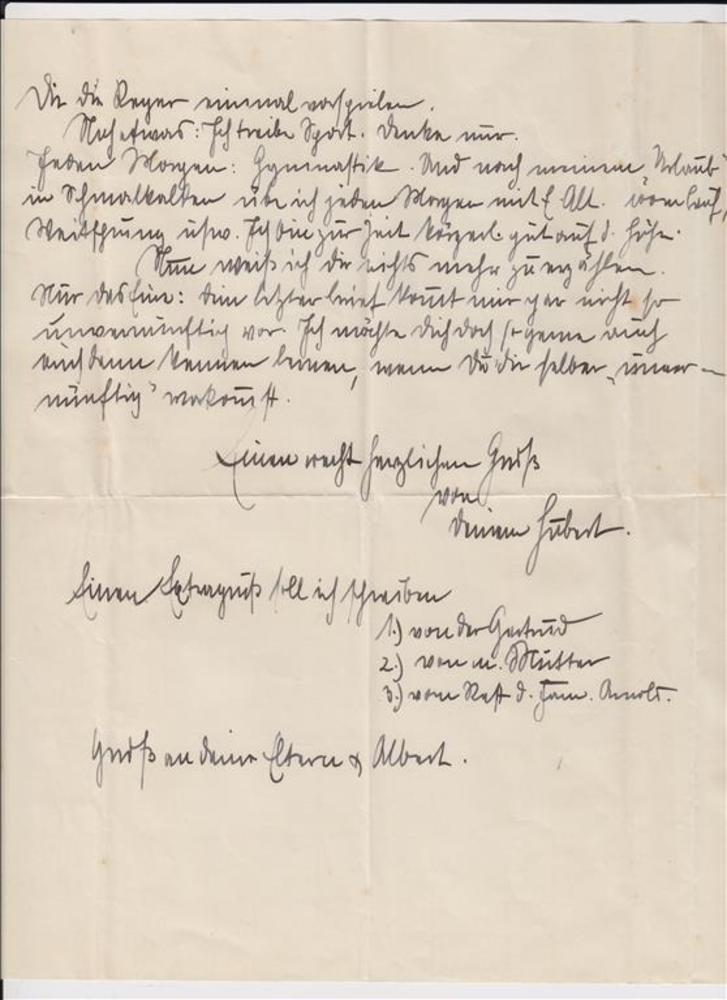 Dir die Reger einmal vorspielen.
Noch etwas: Ich treibe Sport. Denke nur.
Jeden Morgen: Gymnastik. Und nach meinem „Urlaub"
in Schmalkalden übe ich jeden Morgen mit E. Alt.
Weitsprung usw. Ich bin zur Zeit körperl. gut auf d. Höhe.
Nun weiß ich dir nichts mehr zu erzählen.
Nur das Eine: dein letzter Brief kommt mir gar nicht so
unvernünftig vor. Ich möchte Dich doch so gerne auch
auch dann kennen lernen, wenn Du dir selber „unver-
nünftig" vorkommst.
Einen recht herzlichen Gruß
von
deinem Hubert.
Einen Extragruß soll ich schreiben
1.) von der Gertrud
2.) von m. Mutter
3.) vom Rest d. Fam. Arnold.
Gruß an deine Eltern & Albert.